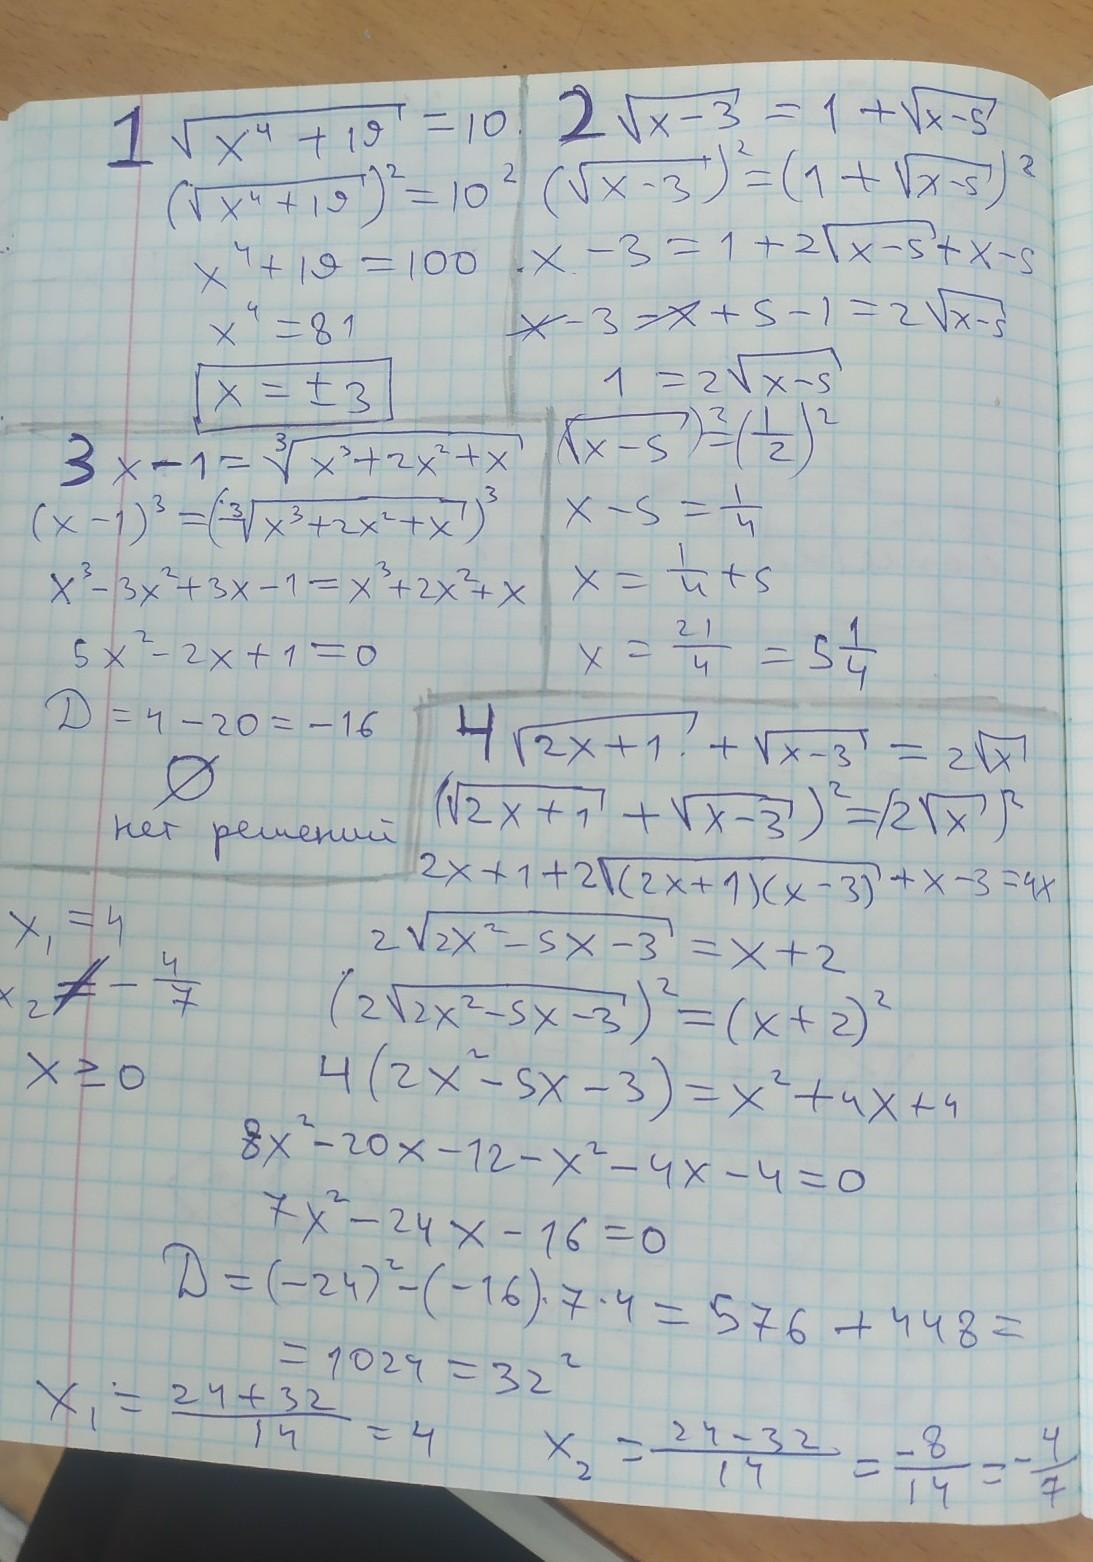 1 √(x⁴+19) = 10
(√(x⁴+19))² = 10²
x⁴+19 = 100
x⁴ = 81
x = ±3
2 √(x-3) = 1 + √(x-5)
(√(x-3))² = (1 + √(x-5))²
x - 3 = 1 + 2√(x-5) + x - 5
x - 3 - x + 5 - 1 = 2√(x-5)
1 = 2√(x-5)
(√(x-5))² = (1/2)²
x - 5 = 1/4
x = 1/4 + 5
x = 21/4 = 5 1/4
3 x - 1 = ³√(x³+2x²+x)
(x-1)³ = (³√(x³+2x²+x))³
x³-3x²+3x-1 = x³+2x²+x
5x²-2x+1 = 0
D = 4 - 20 = -16
∅
нет решений
4 √(2x+1) + √(x-3) = 2√x
(√(2x+1) + √(x-3))² = (2√x)²
2x+1+2√((2x+1)(x-3)) + x-3 = 4x
2√(2x²-5x-3) = x+2
(2√(2x²-5x-3))² = (x+2)²
4(2x²-5x-3) = x²+4x+4
8x²-20x-12-x²-4x-4 = 0
7x²-24x-16 = 0
D = (-24)²-(-16)·7·4 = 576 + 448 =
= 1024 = 32²
x₁ = (24+32)/14 = 4
x₂ = (24-32)/14 = -8/14 = -4/7
x₁ = 4
x₂ ≠ -4/7
x ≥ 0